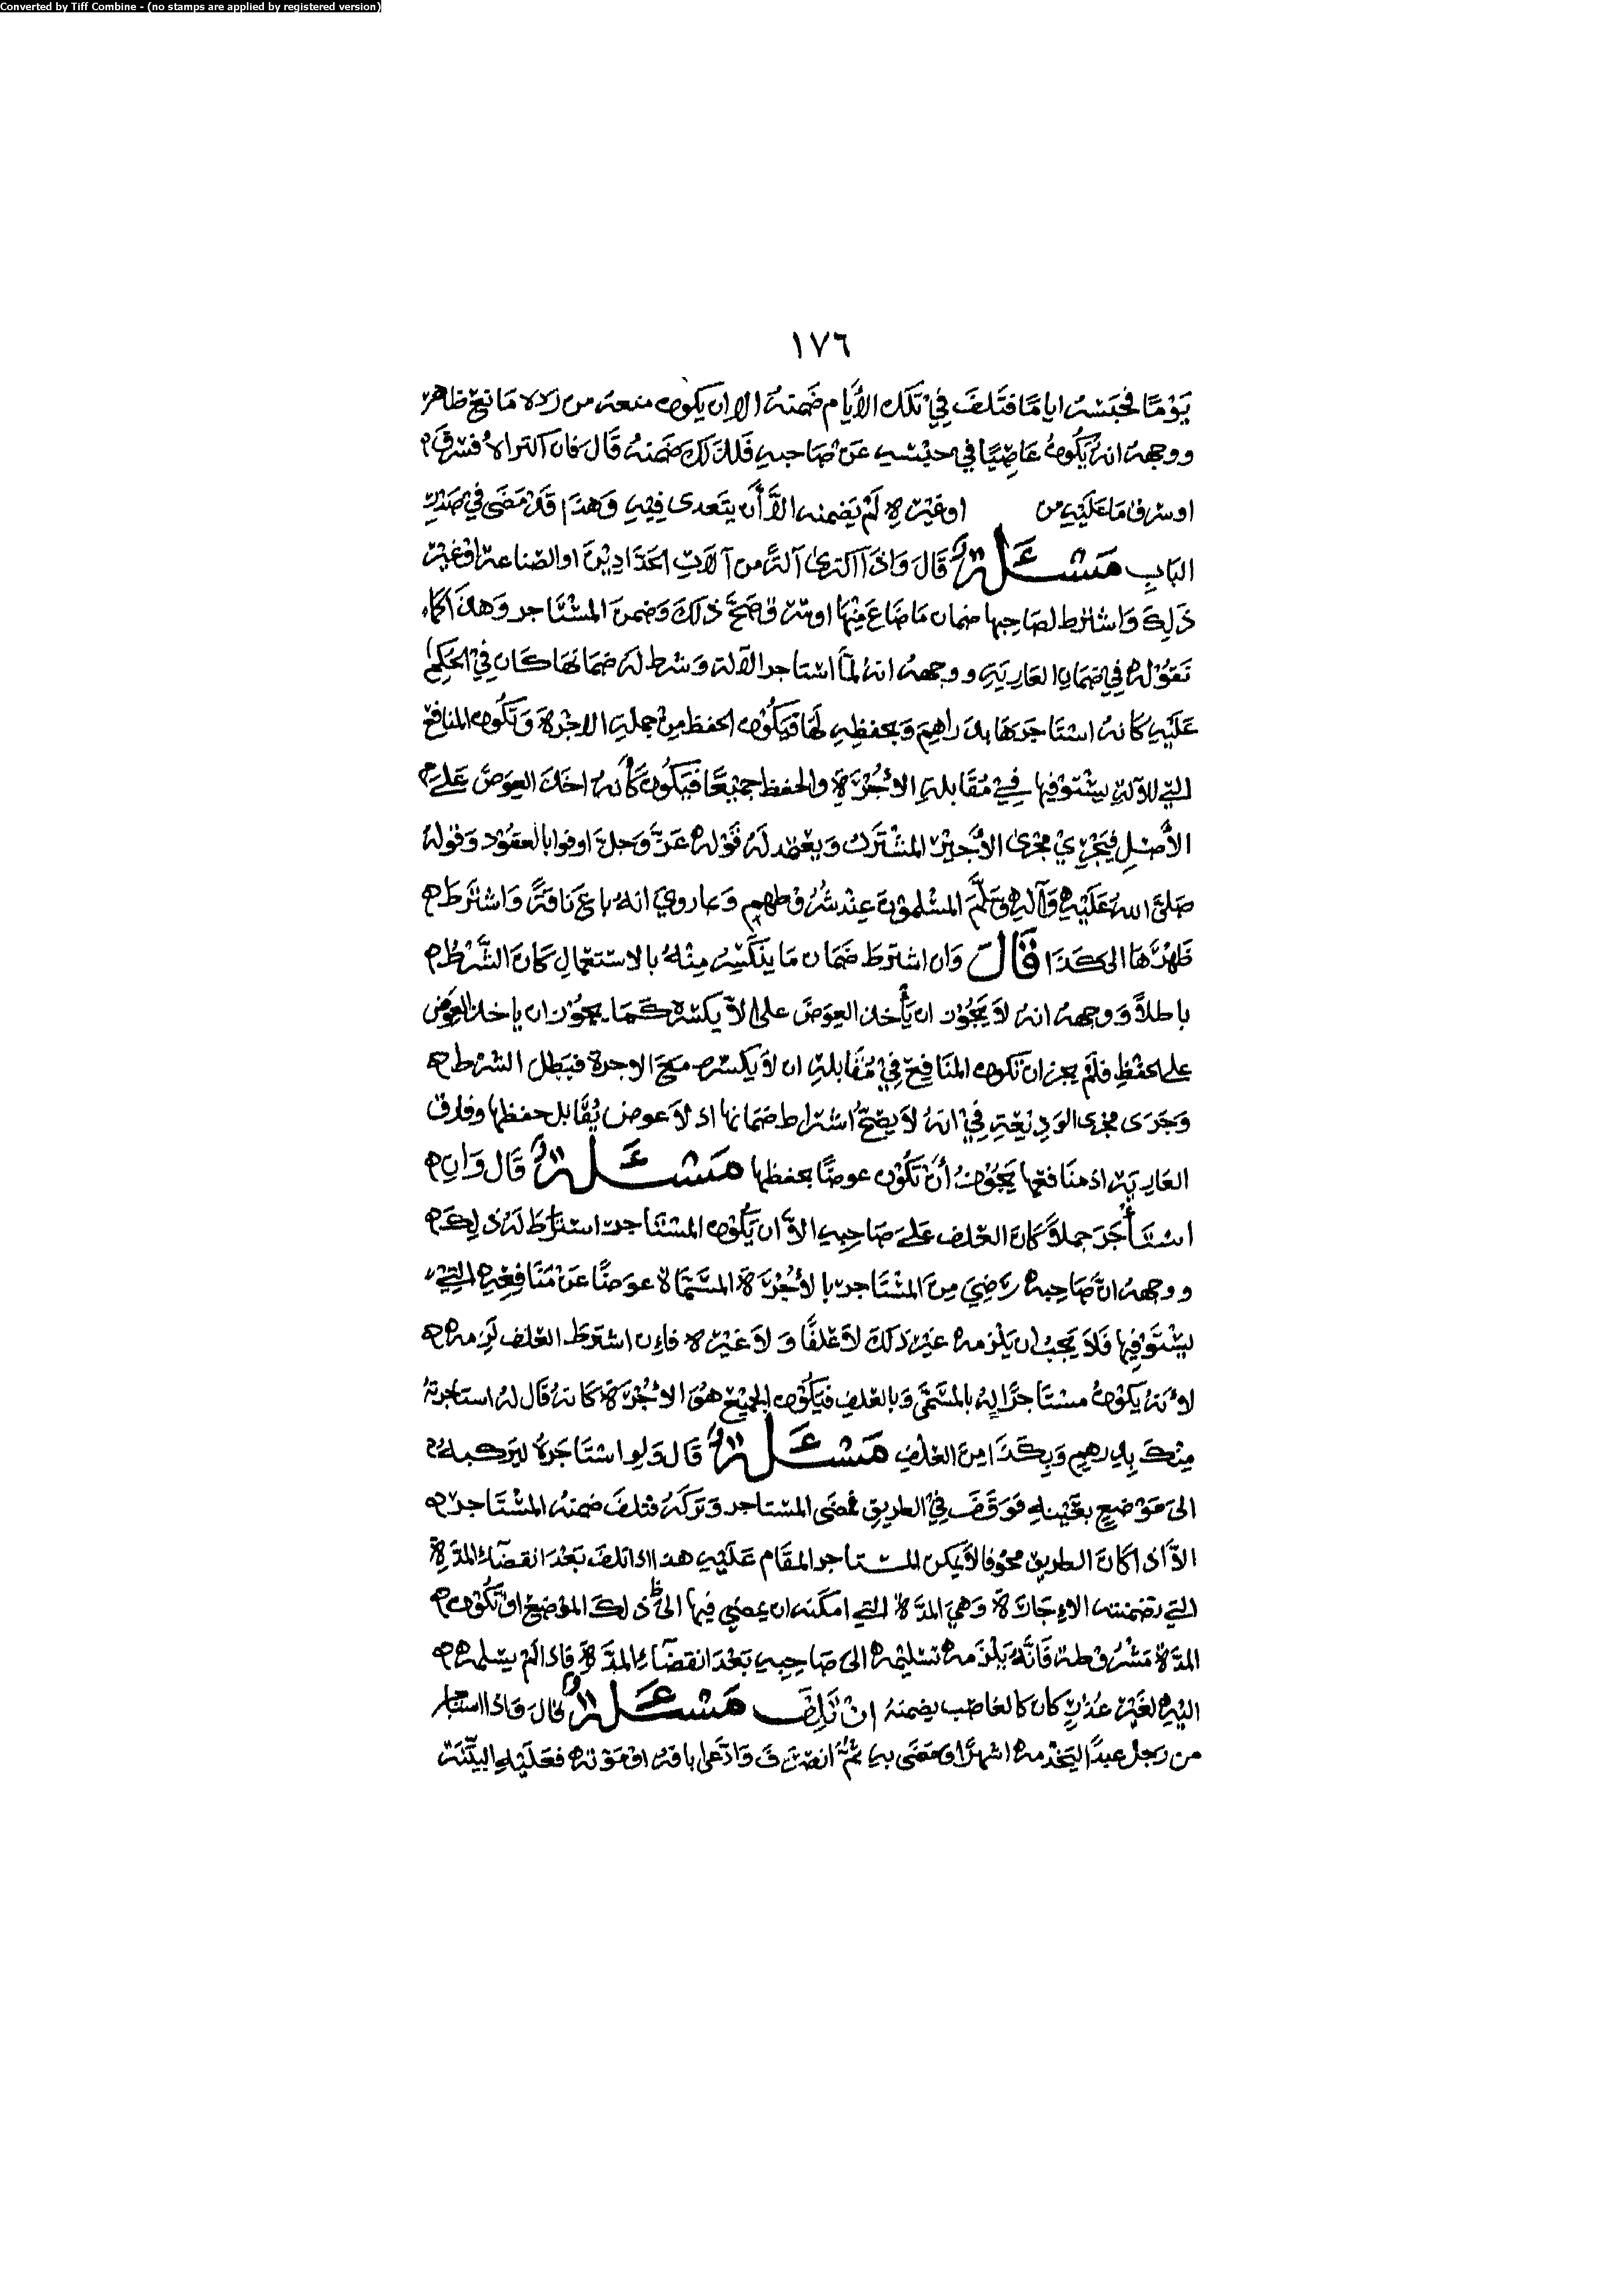 Converted by Tiff Combine - (no stamps are applied by registered version)
١٧٦
يَوْمًا فحَبَسَهُ ايامًا فتَلَفَ فِيْ تلك الأيَّام ضَمِنَهُ الا ان يكون منعه من رده مَانِع ظاهر
ووجهه انه يَكُونُ عَاصِيًا في حبسه عَنْ صَاحبه فَلذَلك ضَمِنَهُ قَالَ فان اكتراه فسُرِقَ
او سرق مَا عَلَيْهِ من او غَيْره لَمْ يَضمنه الاَّ أَن يتَعدى فِيْهِ وَهَذَا قَدْ مَضَى فِي صَدْرِ
البَابِ مَسْئَلَةٌ قَالَ وَاذَا اكترى آلةً من آلاتِ الحَدَّادِيْنَ او الصّناعة اوْ غَيْر
ذَلِكَ وَاشترط لصَاحِبها ضمان مَا ضَاعَ مِنْهَا او سُرِقَ صَحَّ ذلكَ وَضمنَ المسْتَاجر وَهذا كما
نَقُوْله فِي ضَمَانِ العَارِيَةِ ووجهه انهُ لمَّا استاجر الآلة وَشرط لهُ ضمَانهَا كَان فِيْ الحكمِ
عَلَيْهِ كَانهُ استَاجرهَا بدَراهِمَ وَبحفظِهِ لَهَا فيَكُوْن الحفظ مِنْ جملة الاجْرَة وَتَكُون المنافع
التي للآلةِ يسْتَوْفِيهَا فِيْ مُقَابلةِ الأُجْرَةِ والحفظ جمِيْعًا فيَكُوْن كَأَنهُ اخَذَ العِوَضَ عَلَى
الأَصْلِ فيَجْرِيْ مجْرَى الأَجِيْر المشْتَرَك وَيعْضد لَهُ قَوْله عَزَّ وَجلَّ اوفوا بالعقوْد وَقوْلهُ
صَلى اللهُ عَلَيْهِ وَآلِهِ وَسَلَّمَ المسْلموْنَ عِنْد شُرُوْطهِم وَما روي انهُ باعَ نَاقةً وَاشْتَرَطَ
ظَهْرَهَا الى كَذَا قَالَ وَان اشترط ضَمَان مَا ينكَسِرُ مِنْهُ بالاستعمالِ كَانَ الشَّرْطُ
باطلاً وَوجهه انهُ لاَ يَجُوْز ان يَأخذ العِوَضَ على ان لا يكسره كَمَا يجوْز ان ياخذ العِوَض
على الحفْظِ فلمْ يجز ان تكون المنَافِع فِيْ مُقَابلةِ ان لاَ يكسره مَعَ الاجرة فبَطل الشرط
وَجَرَى مجْرى الوَدِيْعَةِ فِيْ انهُ لاَ يصِحُّ اشتراط ضَمَانها اذ لاَ عوض يُقابل حفظها وفارق
العَارِيَة اذ منَافعها يَجُوْز أَنْ تَكُوْن عوضًا بحفظها مَسْئَلَةٌ قَال وَانِ
استَأجَرَ جملاً كَانَ العَلف عَلَى صَاحِبِهِ الاَّ ان يَكُوْن المسْتَاجر اشترَطَ لَهُ ذلِكَ
ووجهه انَّ صَاحِبهُ رَضِيَ مِنَ المسْتَاجر بالأُجْرَة المسَمَّاة عوَضًا عَنْ مَنَافِعِهِ التِيْ
يسْتَوْفِيهَا فَلاَ يَجِبُ ان يلزمهُ غيْر ذلكَ لاَ علفًا وَلاَ غيْره فإن اشترَطَ العَلف لَزمه
لأنهُ يكوْنُ مستَاجرًا لهُ بالمسَمَّى وَبالعَلفِ فيَكُوْن الجميْع هُوَ الأُجْرَة كَانهُ قَال لهُ استاجرتهُ
مِنْكَ بدرهمٍ وَبكَذَا مِنَ العَلفِ مَسْئَلَةٌ قَال وَلو استَاجَرهُ ليَركَبهُ
الىَ مَوْضعٍ بعَيْنهِ فوَقَفَ فِيْ الطريق فمضَى المستاجر وَتركَهُ فتلفَ ضمنهُ المسْتَاجر
الاَّ اذا كَانَ الطريق مخوْفا لاَ يمكن المستاجر المقَام عَلَيْهِ هذا اذا تلفَ بَعْدَ انقضَاءِ المدَّةِ
التي تضمنته الإجَارَة وَهيَ المدَّة التي امكَنه ان يمضي فيها الى ذلكَ الموْضع اوْ تَكُوْن
المدَّة مَشْرُوْطةً فَانَّهُ يَلْزَمه تسْليْمهُ الى صَاحِبهِ بَعْدَ انقضَاءِ المدَّةِ فاذا لَمْ يسَلمه
اليْهِ لغَيْر عُذرٍ كَان كَالغاصب يضمنهُ انْ تَلِفَ مَسْئَلَةٌ قَالَ وَاذا استاجر
من رَجل عبدًا ليَخْدمه اشهرًا ومَضَى به ثُمَّ انصَرَفَ وَادَّعى إباقه اوْ مَوْته فعَلَيْهِ البيِّنَة